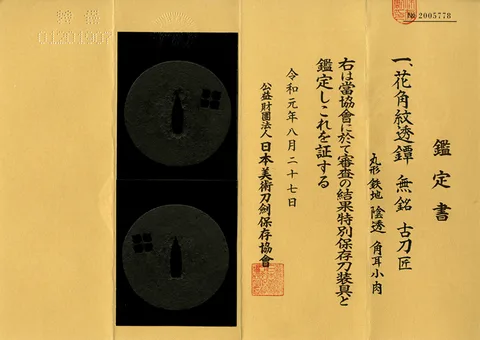 № 2005778
鑑定書
一、花角紋透鐔 無銘 古刀匠
丸形 鉄地 陰透 角耳小肉
右は當協會に於て審査の結果特別保存刀装具と
鑑定しこれを証する
令和元年八月二十七日
公益財團法人 日本美術刀劍保存協會